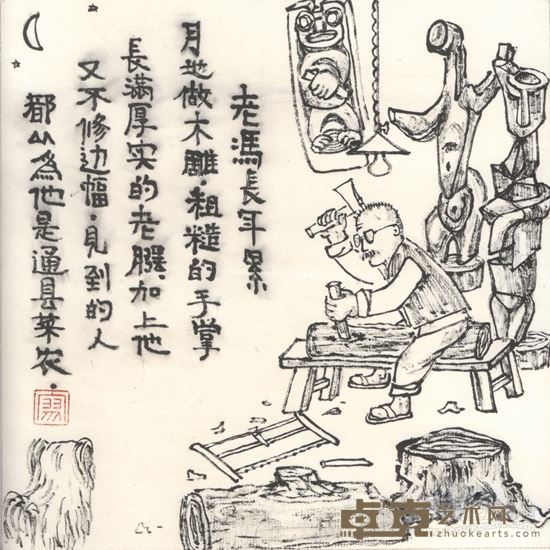 老馮長年累
月地做木雕.粗糙的手掌
長滿厚实的老膙.加上他
又不修边幅.見到的人
都以為他是通县菜农.
卓克艺术网
www.zhuokearts.com